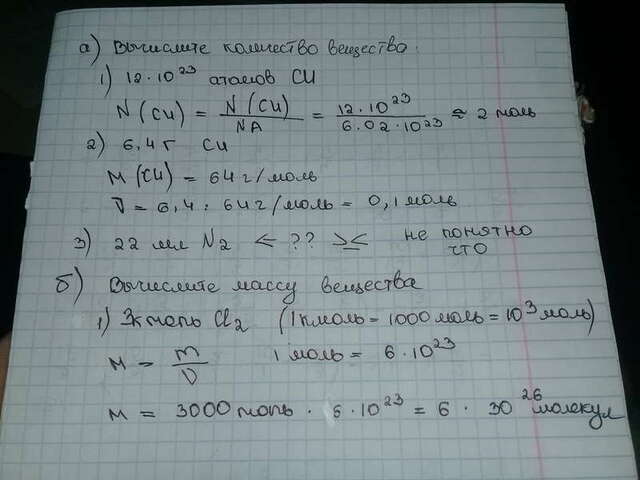 а) Вычислите количество вещества:
1) 12·10²³ атомов Cu
N(Cu) = N(Cu)/NA = 12·10²³/6.02·10²³ ≈ 2 моль
2) 6,4 г Cu
M(Cu) = 64 г/моль
ν = 6,4 : 64 г/моль = 0,1 моль
3) 22 мл N₂ ← ?? >< не понятно
что
б) Вычислите массу вещества
1) 3кмоль Cl₂ (1кмоль = 1000моль = 10³моль)
M = m/ν 1 моль = 6·10²³
M = 3000 моль · 6·10²³ = 6 · 30²⁶ молекул